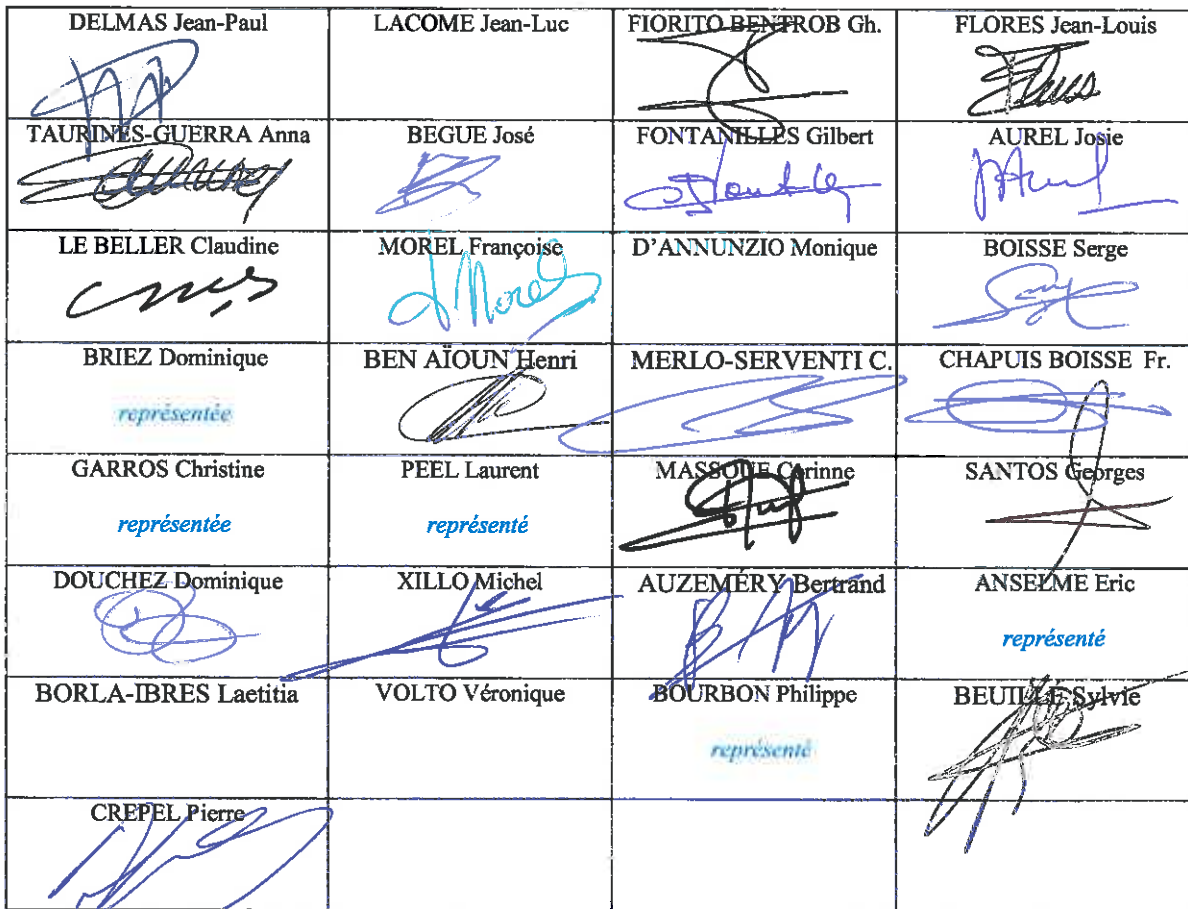 DELMAS Jean-Paul
LACOME Jean-Luc
FIORITO BENTROB Gh.
FLORES Jean-Louis
TAURINES-GUERRA Anna
BEGUE José
FONTANILLES Gilbert
AUREL Josie
LE BELLER Claudine
MOREL Françoise
D'ANNUNZIO Monique
BOISSE Serge
BRIEZ Dominique
représentée
BEN AÏOUN Henri
MERLO-SERVENTI C.
CHAPUIS BOISSE Fr.
GARROS Christine
représentée
PEEL Laurent
représenté
MASSOUE Corinne
SANTOS Georges
DOUCHEZ Dominique
XILLO Michel
AUZEMÉRY Bertrand
ANSELME Eric
représenté
BORLA-IBRES Laetitia
VOLTO Véronique
BOURBON Philippe
représenté
BEUILLÉ Sylvie
CREPEL Pierre